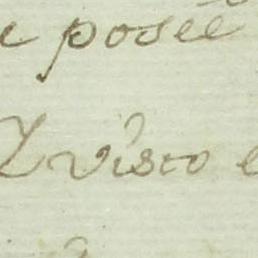 e posee
Y visto e